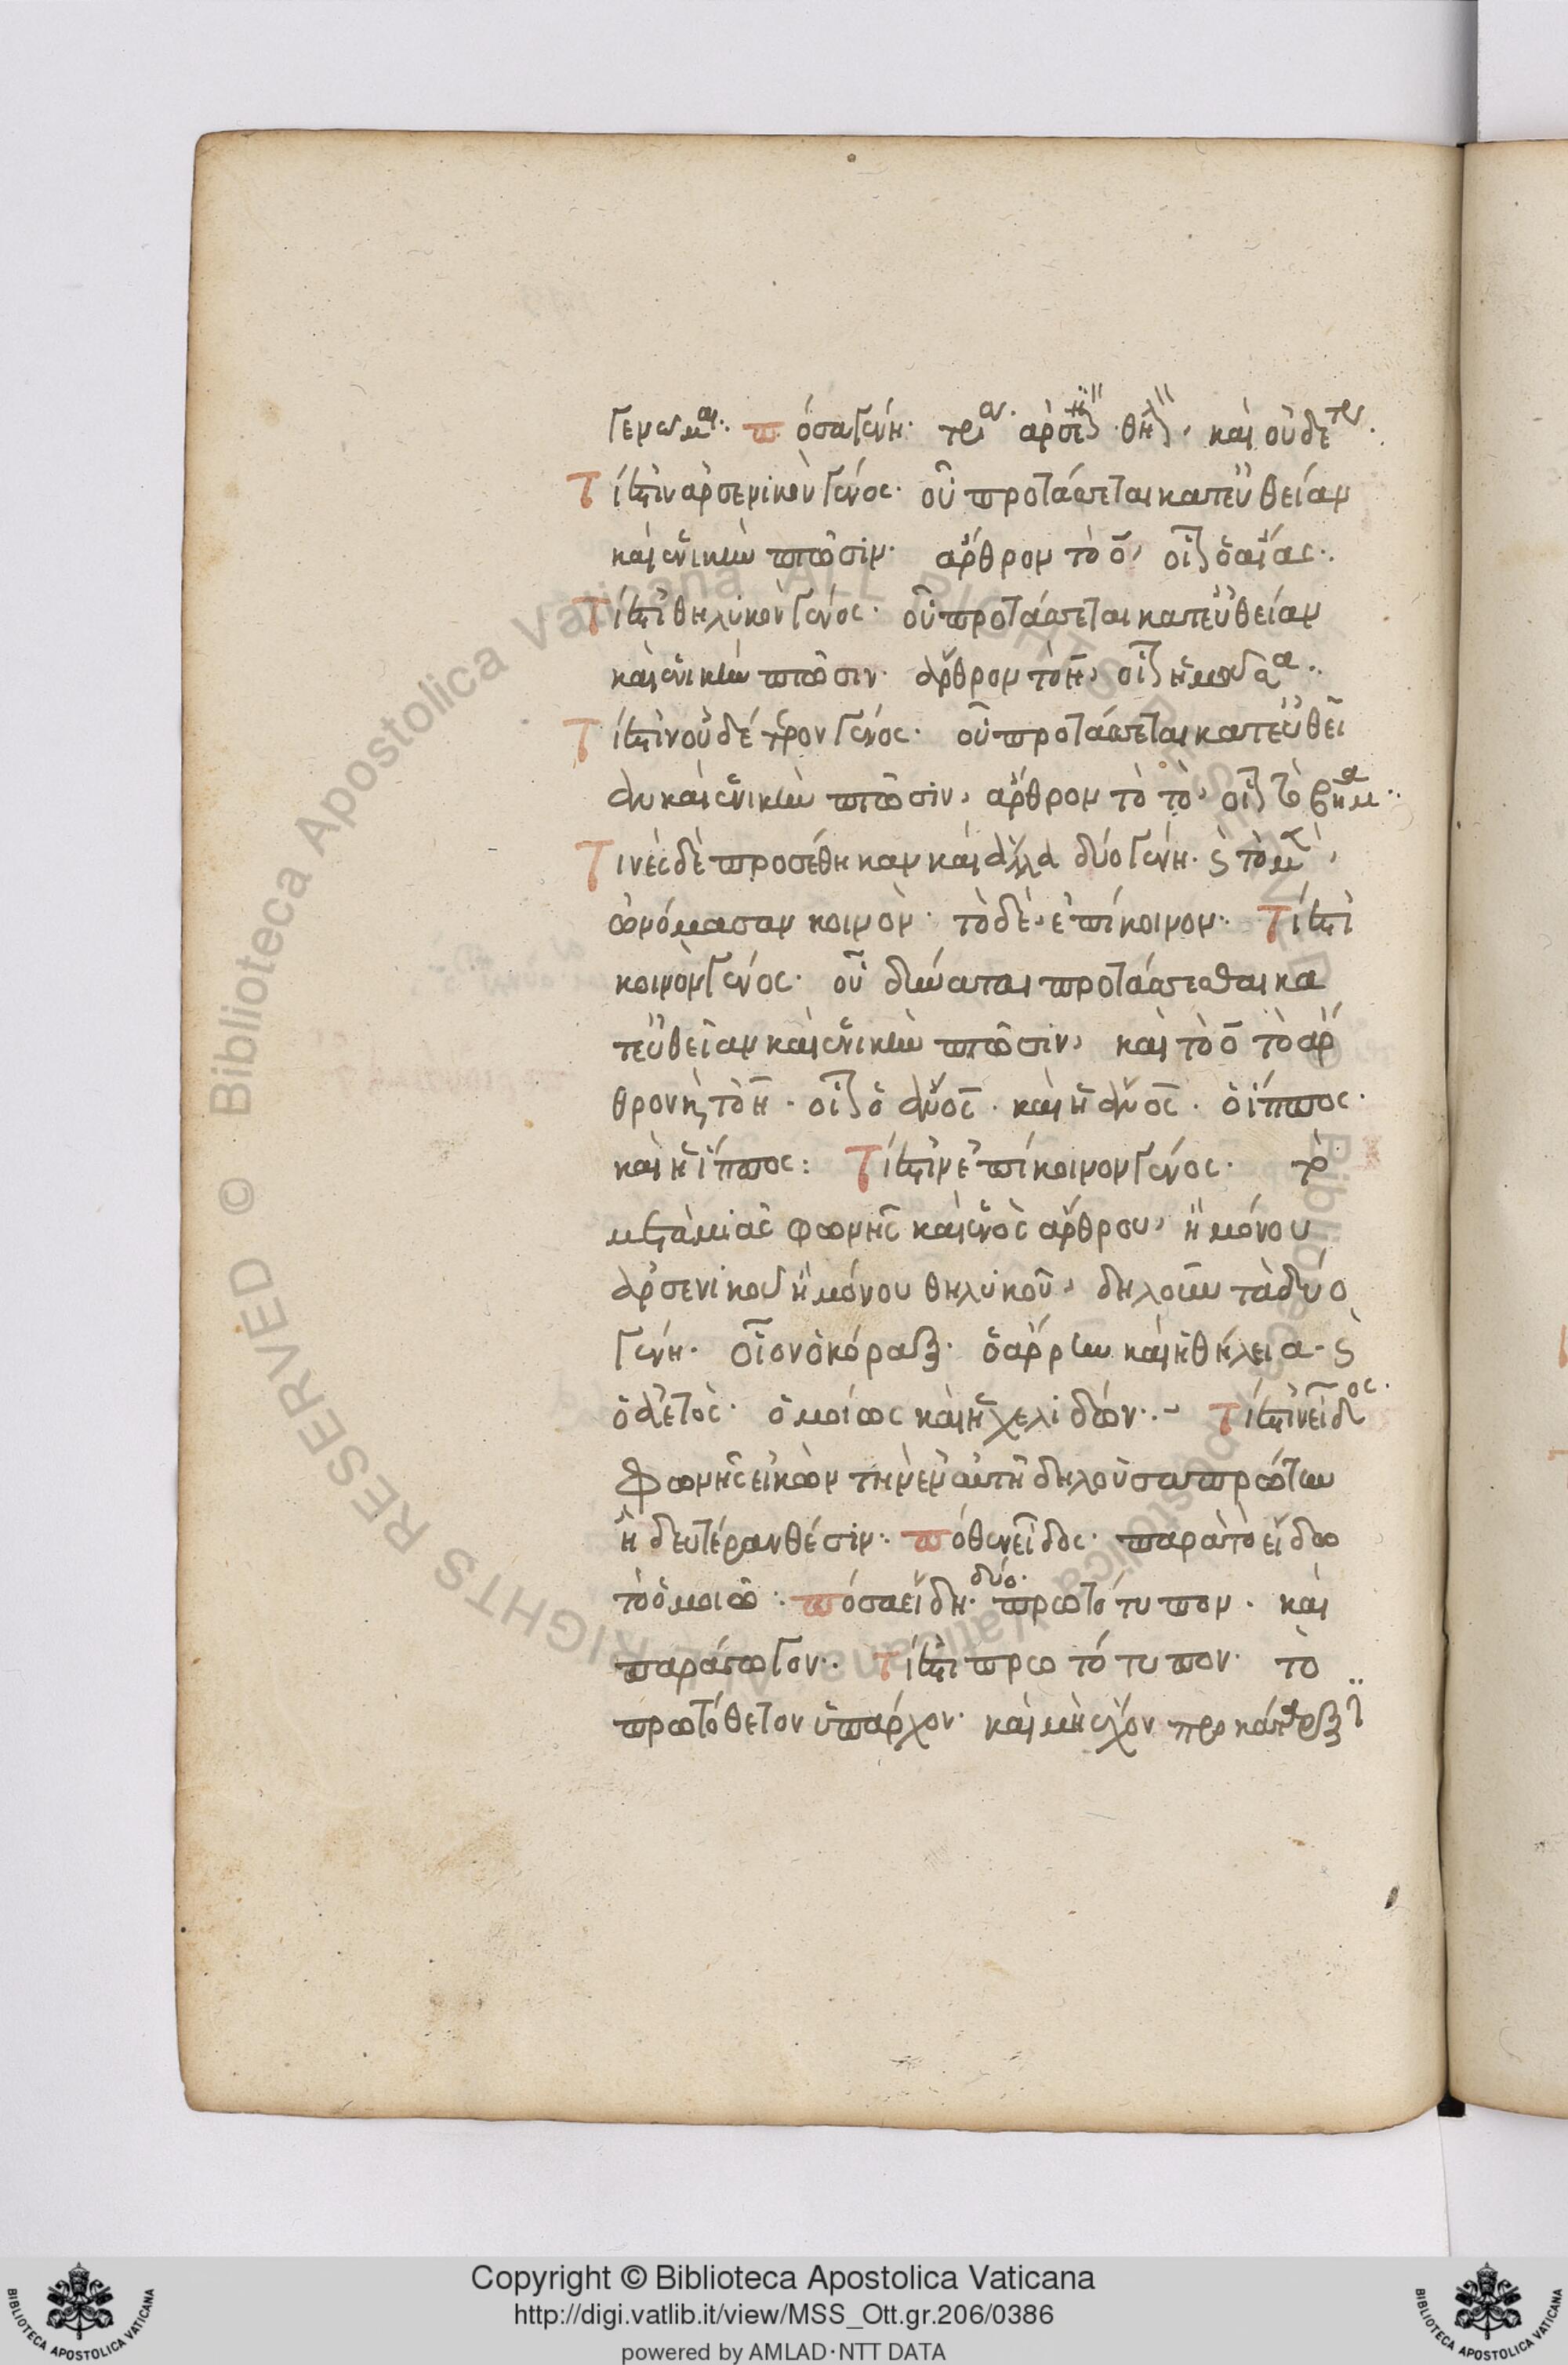 γενῶμαι. πόσα γένη. τρία. ἀρσενικόν. θηλυκόν, καὶ οὐδέτερον.
Τί ἐστιν ἀρσενικὸν γένος. οὗ προτάσσεται κατ' εὐθεῖαν
καὶ ἑνικὴν πτῶσιν. ἄρθρον τὸ ὁ, οἷον ὁ αἴας.
Τί ἐστι θηλυκὸν γένος. οὗ προτάσσεται κατ' εὐθεῖαν
καὶ ἑνικὴν πτῶσιν. ἄρθρον τὸ ἡ, οἷον ἡ μοῦσα.
Τί ἐστιν οὐδέτερον γένος. οὗ προτάσσεται κατ' εὐθεῖ
αν καὶ ἑνικὴν πτῶσιν, ἄρθρον τὸ τὸ, οἷον τὸ βῆμα.
Τινὲς δὲ προσέθηκαν καὶ ἄλλα δύο γένη. καὶ τὸ μὲν,
ὠνόμασαν κοινὸν. τὸ δὲ, ἐπίκοινον. Τί ἐστι
κοινὸν γένος. οὗ δύναται προτάσσεσθαι κα
τ' εὐθεῖαν καὶ ἑνικὴν πτῶσιν, καὶ τὸ ὁ τὸ ἄρ
θρον καὶ τὸ ἡ. οἷον ὁ ἄνος. καὶ ἡ ἄνος. ὁ ἵππος.
καὶ ἡ ἵππος: Τί ἐστιν ἐπίκοινον γένος. τὸ
μετὰ μιᾶς φωνῆς καὶ ἑνὸς ἄρθρου, ἢ μόνου
ἀρσενικοῦ ἢ μόνου θηλυκοῦ, δηλοῦν τὰ δύο
γένη. οἷον ὁ κόραξ. ὁ ἄρρην καὶ ἡ θήλεια. καὶ
ὁ ἀετὸς. ὁμοίως καὶ ἡ χελιδών. Τί ἐστιν εἶδος.
Φωνῆς εἰκὼν τὴν ἐν αὐτῇ δηλοῦσα πρώτην
ἢ δευτέραν θέσιν. πόθεν εἶδος. παρὰ τὸ εἴδω
τὸ ὁμοιῶ. πόσα εἴδη. δύο. πρωτότυπον. καὶ
παράγωγον. τί ἐστι πρωτότυπον. τὸ
πρωτόθετον ὑπάρχον. καὶ μὴ ἔχον